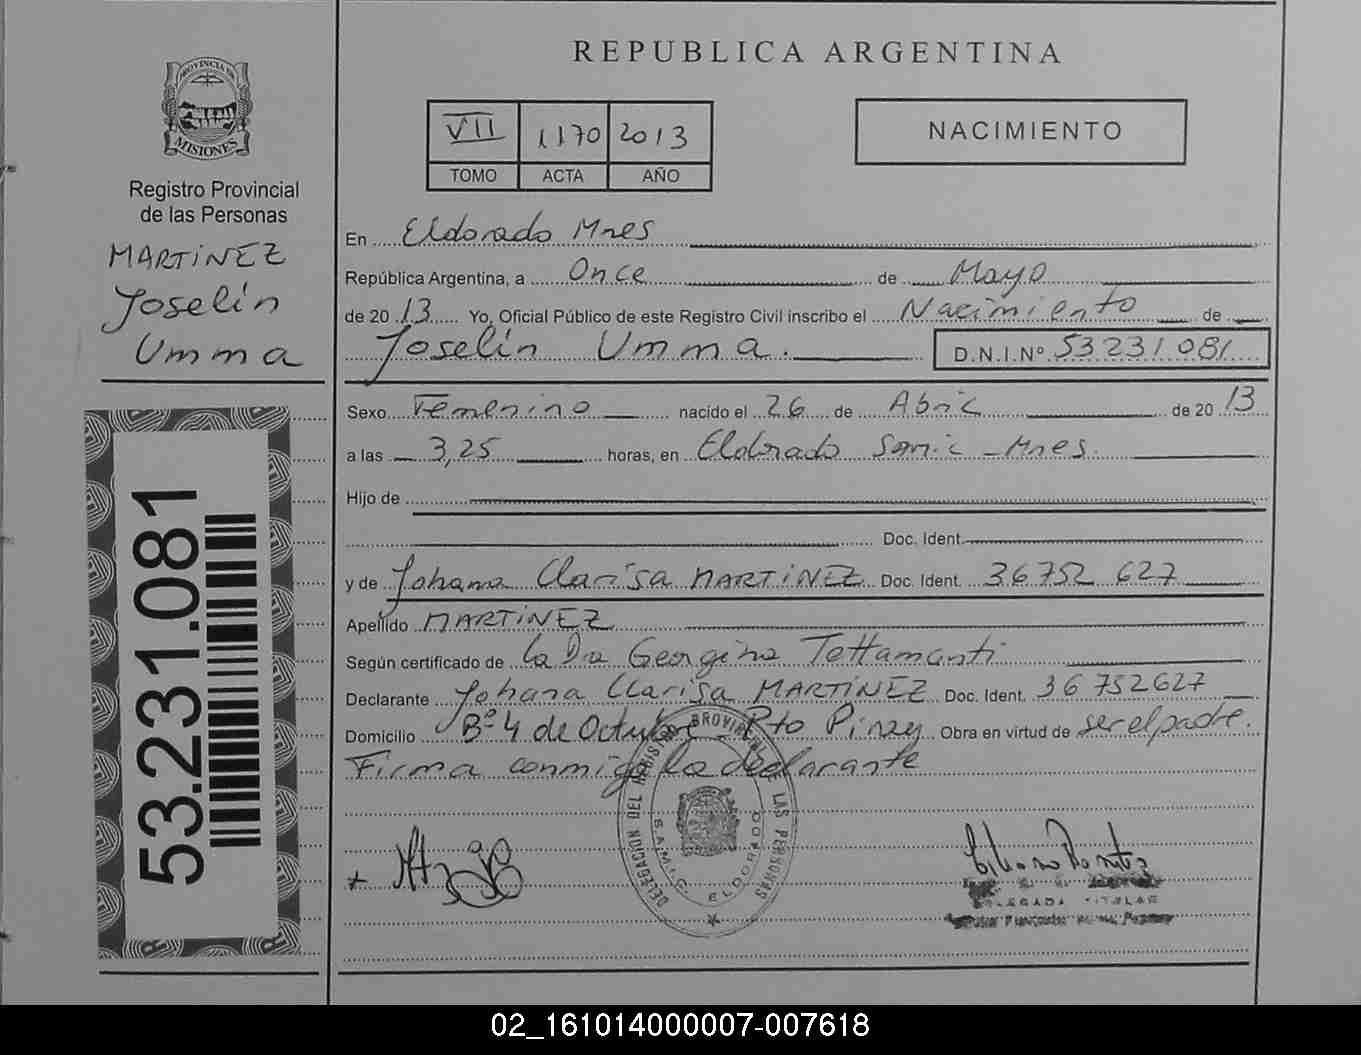 REPUBLICA ARGENTINA
PROVINCIA DE
MISIONES
Registro Provincial
de las Personas
MARTINEZ
Joselín
Umma
53.231.081
VII 1170 2013
TOMO ACTA AÑO
NACIMIENTO
En Eldorado Mnes
República Argentina, a Once de Mayo
de 20 13 Yo, Oficial Público de este Registro Civil inscribo el Nacimiento de
Joselín Umma. D.N.I.Nº 53231081
Sexo Femenino nacido el 26 de Abril de 20 13
a las 3,25 horas, en Eldorado Samic - Mnes.
Hijo de
Doc. Ident.
y de Johana Clarisa MARTINEZ Doc. Ident. 36752 627
Apellido MARTINEZ
Según certificado de la Dra Georgina Tettamanti
Declarante Johana Clarisa MARTINEZ Doc. Ident. 36752627
Domicilio Bº 4 de Octubre - Pto Piray Obra en virtud de ser el padre.
Firma conmigo la declarante
DELEGACION DEL REGISTRO PROVINCIAL DE LAS PERSONAS
S.A.M.I.C. ELDORADO
DELEGADA TITULAR
02_161014000007-007618